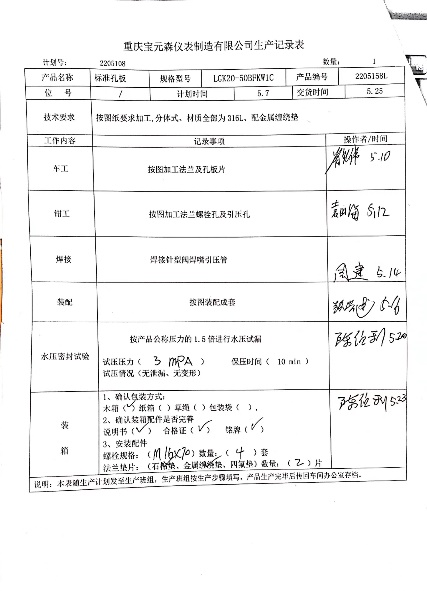 重庆宝元森仪表制造有限公司生产记录表
计划号: 2205108 数量: 1
产品名称 标准孔板 规格型号 LGK20-50BFKW1C 产品编号 2205158L
位 号 / 计划时间 5.7 交货时间 5.25
技术要求 按图纸要求加工,分体式、材质全部为316L、配金属缠绕垫
工作内容 记录事项 操作者/时间
车工 按图加工法兰及孔板片 5.10
钳工 按图加工法兰螺栓孔及引压孔 5.12
焊接 焊接针型阀焊嘴引压管 周建 5.14
装配 按图装配成套
水压密封试验 按产品公称压力的1.5倍进行水压试漏 5.20
试压压力( 3 MPA ) 保压时间( 10 min )
试压情况(无泄漏、无变形)✓
装箱 1、确认包装方式: 5.23
木箱(✓)纸箱( )草绳( )包装袋( ),
2、确认装箱配件是否完备
说明书(✓) 合格证(✓) 铭牌(✓)
3、安装配件
螺栓规格:(M16X70)数量:( 4 )套
法兰垫片:(石棉垫、金属缠绕垫、四氟垫)数量:( 2 )片
说明:本表随生产计划发至生产班组,生产班组按生产步骤填写,产品生产完毕后转回车间办公室存档。